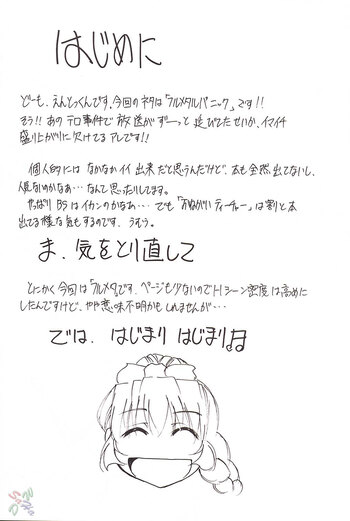 はじめに
どーも、えんとっくんです。今回のネタは「フルメタルパニック」です!!
そう!!あのテロ事件で放送がずーっと延びてたせいか、イマイチ
盛り上がりに欠けてるアレです!!
個人的にはなかなかイイ出来だと思うんだけど、本も全然出てないし、
人気ないのかなあ…なんて思ったりしてます。
やっぱりBSはイカンのかなぁ…でも「おねがいティーチャー」は割と本
出てる様な気もするのです。うむう。
ま、気をとり直して
とにかく今回は「フルメタ」です。ページも少ないのでHシーン密度は高めに
したんですけど、やや意味不明かもしれませんが…
では、はじまりはじまり♫